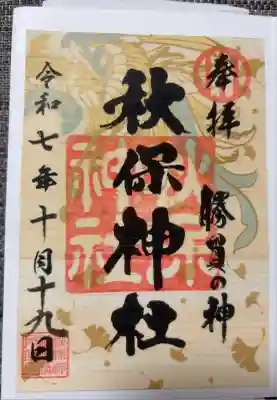 奉拝
勝負の神
秋保神社
令和七年十月十九日
秋保神社